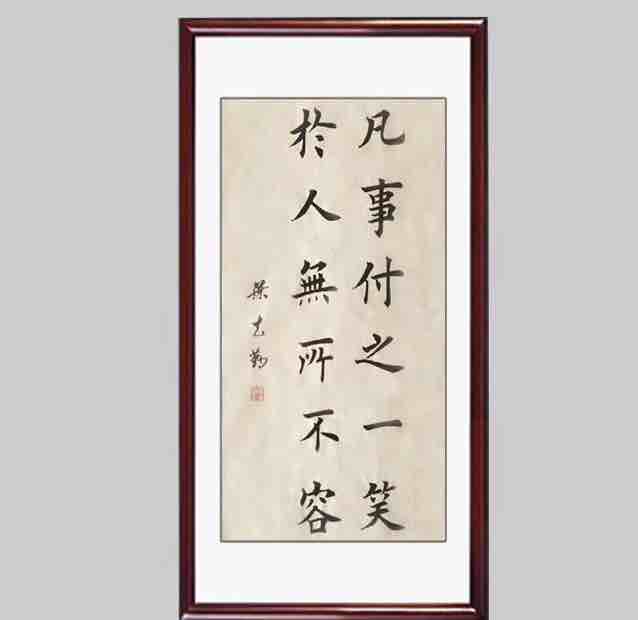 凡事付之一笑
於人無所不容
葉志勤